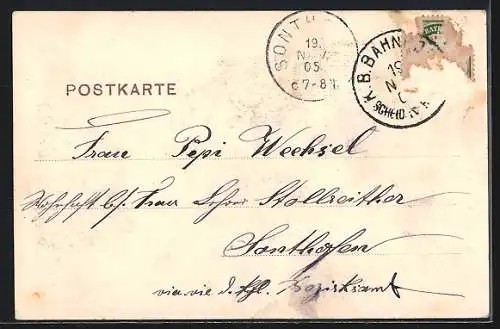 POSTKARTE
SONTH
19.
NOV.
05
7-8 N.
K. B. BAHN
19
N
SCHEID
Frau Pepi Wechsel
Wohnhaft b/. Frau Lehrer Stollreither
Sonthofen
vis-vis d. kgl. Bezirksamt